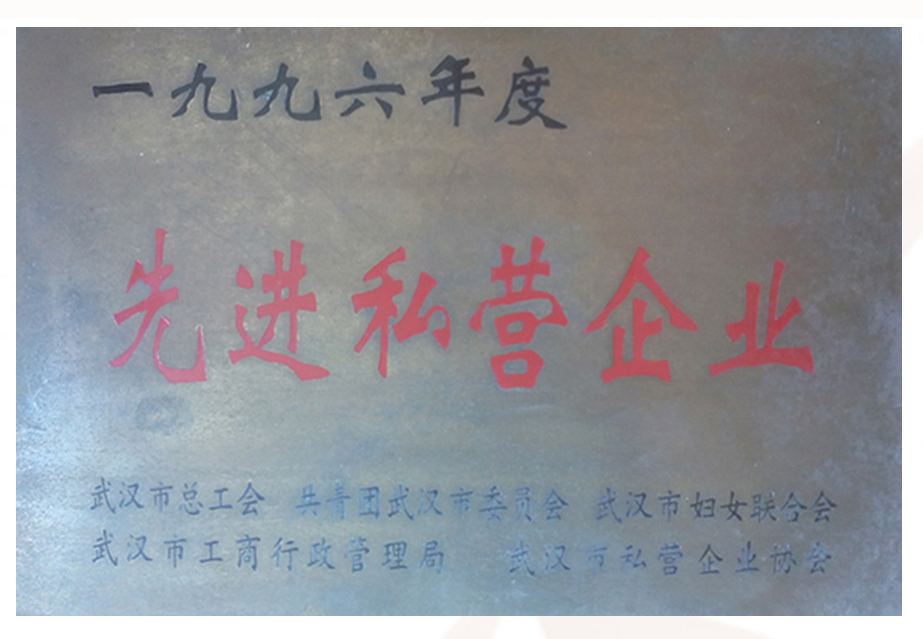 一九九六年度
先进私营企业
武汉市总工会 共青团武汉市委员会 武汉市妇女联合会
武汉市工商行政管理局 武汉市私营企业协会